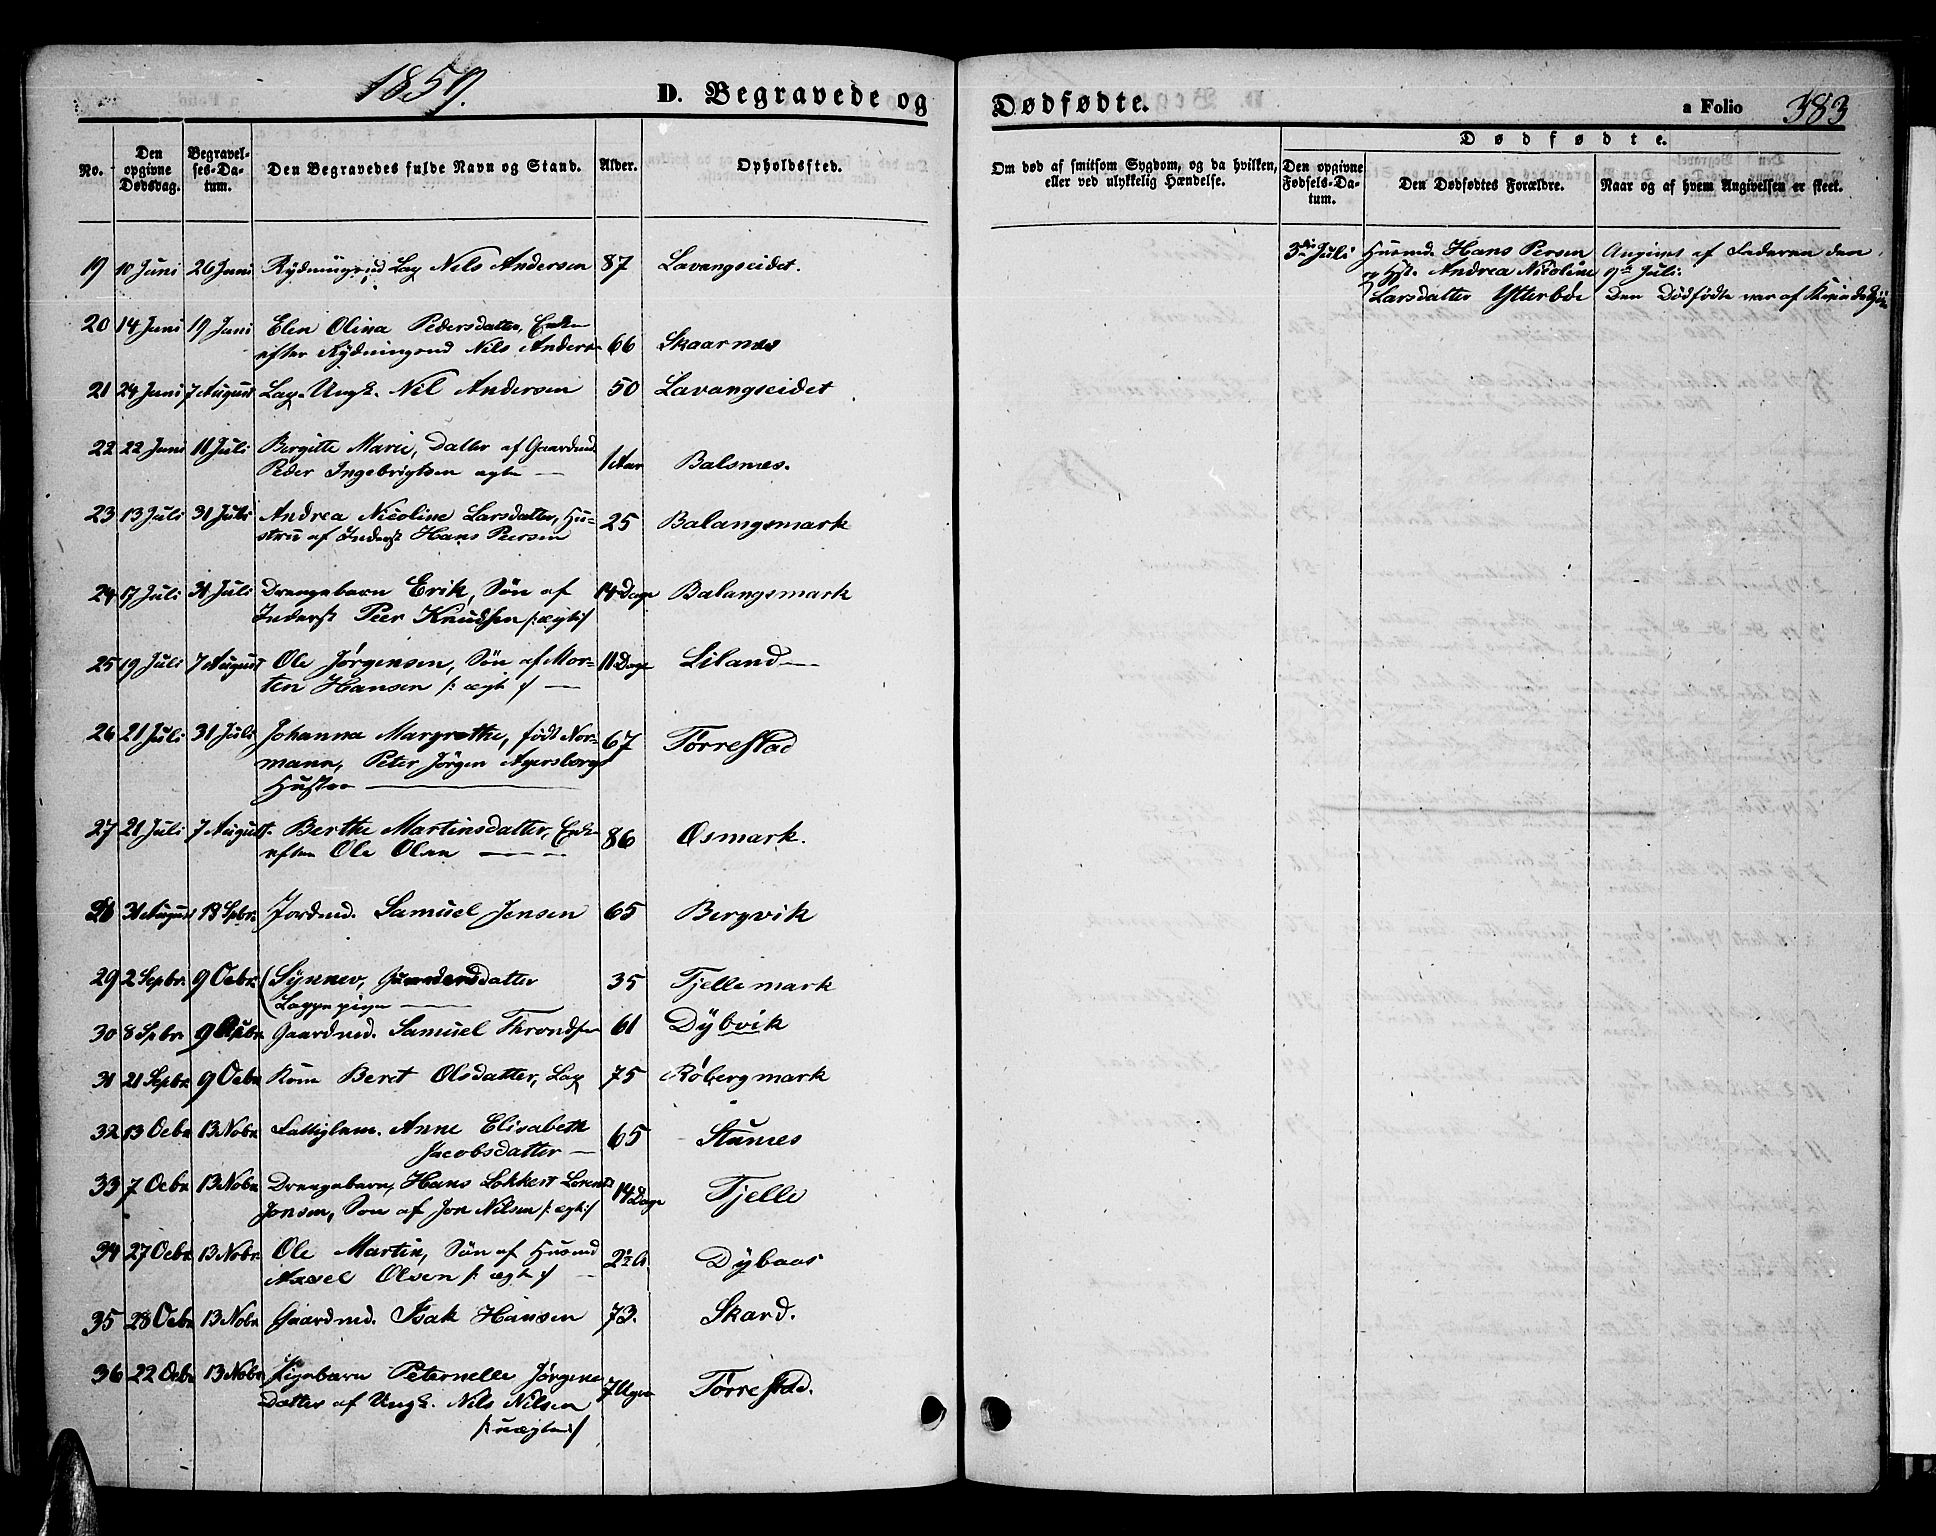 1859.
D. Begravede og Dødfødte.
a Folio 383
No.
Den opgivne Dødsdag.
Begravelses-Datum.
Den Begravedes fulde Navn og Stand.
Alder.
Opholdssted.
Om død af smitsom Sygdom, og da hvilken, eller ved ulykkelig Hændelse.
Dødfødte.
Den opgivne Fødsels-Datum.
Den Dødfødtes Forældre.
Naar og af hvem Angivelsen er skeet.
19 10 Juni 26 Juni Rydningsmd Lap Nils Andersen 87 Lavangseidet.
20 14 Juni 19 Juni Elen Olina Pedersdatter, Enke
efter Rydningsmd Nils Anders 66 Skaarnes
21 24 Juni 7 August Lap. Ungk. Nil Andersen 50 Lavangseidet
22 22 Juni 11 Juli Birgitte Marie, Datter af Gaardmd.
Peder Ingebrigtsen ægte — 1 Aar Balsnes.
23 13 Juli 31 Juli Andrea Nicoline Larsdatter, Hu-
stru af Inderst Hans Persen 25 Balangsmark
24 17 Juli 31 Juli Drengebarn Erik, Søn af
Inderst Peer Knudsen /: ægte :/ 14 Dage Balangsmark
25 19 Juli 7 August Ole Jørgensen, Søn af Mor-
ten Hansen /: ægt :/ — 11 Dage Liland —
26 21 Juli 31 Juli Johanna Margrethe, født Nor-
mann, Peter Jörgen Agersborgs
Hustru — 67 Tørrestad
27 21 Juli 7 August. Berthe Martinsdatter, Enke
efter Ole Olsen — 86 Osmark.
28 31 August 18 Spbr. Jordmd. Samuel Jensen 65 Bergvik
29 2 Sepbr. 9 Ocbr. Synnev, Gundersdatter
Lappepige — 35 Tjellemark
30 8 Spbr. 9 Ocbr. Gaardmd. Samuel Throndsen 61 Dÿbvik
31 21 Sepbr. 9 Ocbr. Kone Beret Olsdatter, Lap 75 Røbergmark
32 13 Ocbr. 13 Nobr. Fattiglem. Anne Elisabeth
Jacobsdatter — 65 Stunes
33 7 Ocbr. 13 Nobr. Drengebarn, Hans Lokkert Lorents
Jonsen, Søn af Jon Nilsen /: ægt :/ 14 Dage Tjelle
34 27 Ocbr. 13 Nobr. Ole Martin, Søn af Husmd
Axsel Olsen /: ægt :/ — 2½ A. Dÿbaas
35 28 Ocbr. 13 Nobr. Gaardmd. Isak Hansen 73. Skard.
36 22 Ocbr. 13 Nobr. Pigebarn Peternelle Jørgine
Datter af Ungk. Nils Nilsen
/: uægte :/ 7 Uger Tørrestad.
3die Juli Husmd. Hans Persen
og Hst. Andrea Nicoline
Larsdatter Ytterböe
Angives af Faderen den
9de Juli.
Den Dødfødte var af Kvindekjön